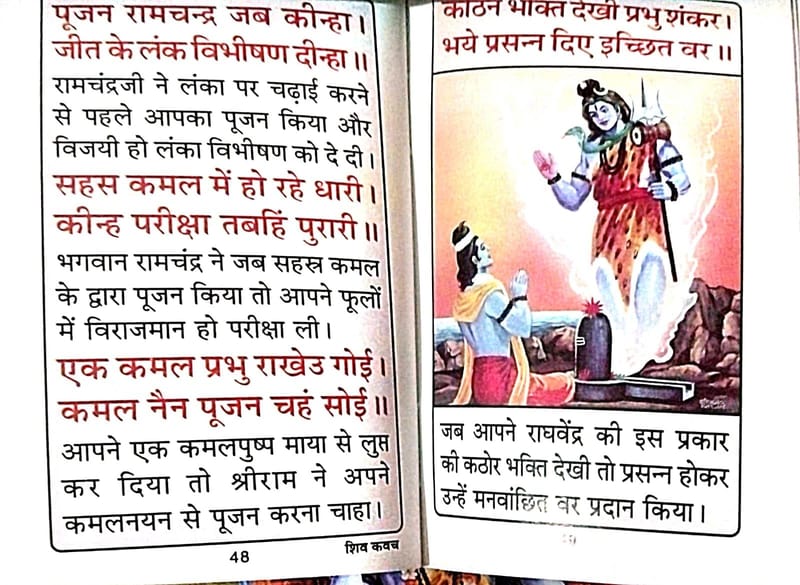 पूजन रामचन्द्र जब कीन्हा।
जीत के लंक विभीषण दीन्हा॥
रामचंद्रजी ने लंका पर चढ़ाई करने
से पहले आपका पूजन किया और
विजयी हो लंका विभीषण को दे दी।
सहस कमल में हो रहे धारी।
कीन्ह परीक्षा तबहिं पुरारी॥
भगवान रामचंद्र ने जब सहस्र कमल
के द्वारा पूजन किया तो आपने फूलों
में विराजमान हो परीक्षा ली।
एक कमल प्रभु राखेउ गोई।
कमल नैन पूजन चहं सोई॥
आपने एक कमलपुष्प माया से लुप्त
कर दिया तो श्रीराम ने अपने
कमलनयन से पूजन करना चाहा।
48
शिव कवच
कठिन भक्ति देखी प्रभु शंकर।
भये प्रसन्न दिए इच्छित वर॥
जब आपने राघवेंद्र की इस प्रकार
की कठोर भक्ति देखी तो प्रसन्न होकर
उन्हें मनवांछित वर प्रदान किया।